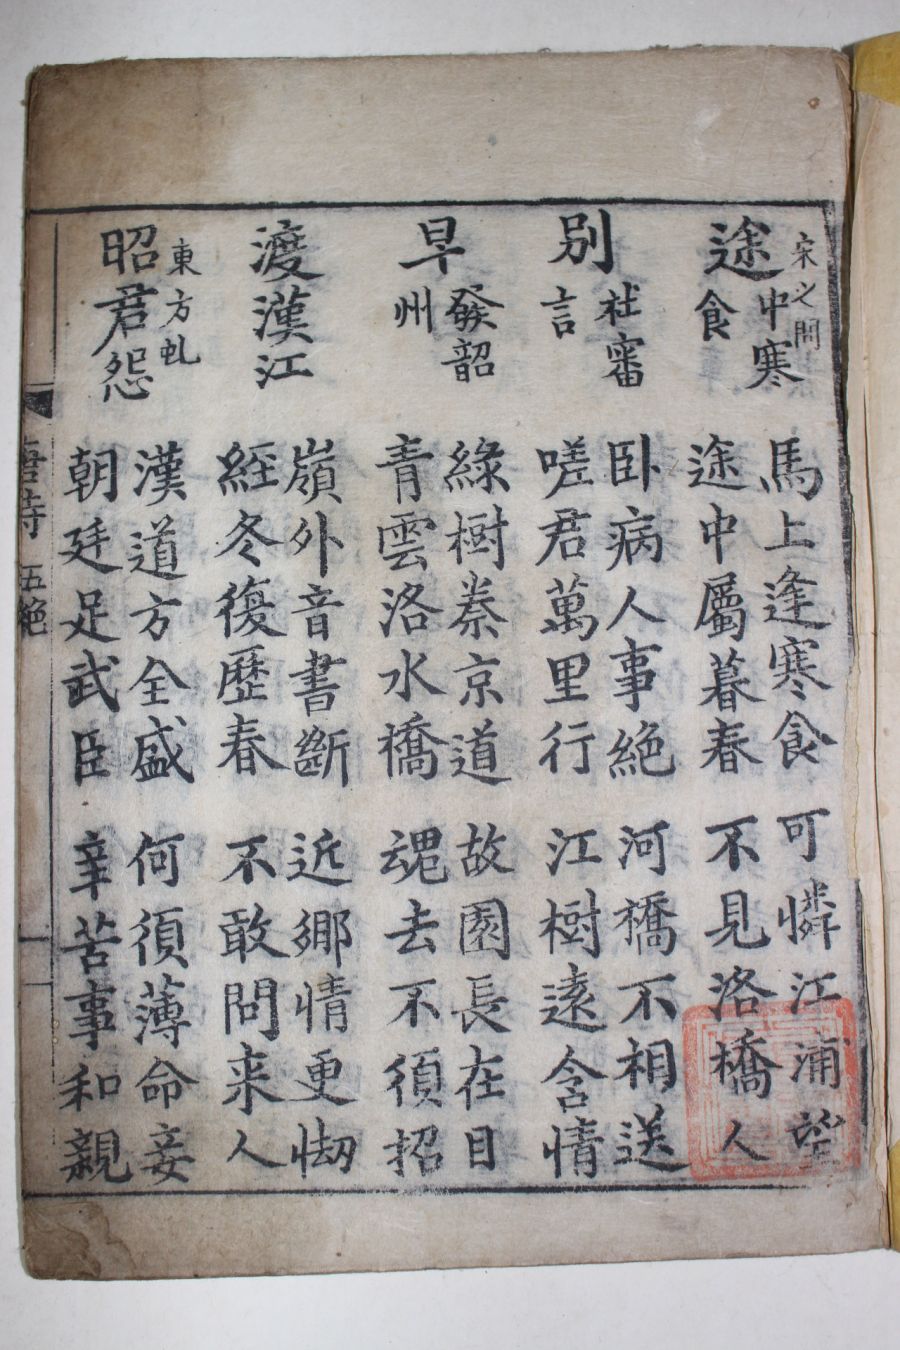 宋之問
途中寒食
馬上逢寒食
可憐江浦望
途中屬暮春
不見洛橋人
別杜審言
臥病人事絕
河橋不相送
嗟君萬里行
江樹遠含情
早發韶州
綠樹秦京道
故園長在目
青雲洛水橋
魂去不須招
渡漢江
嶺外音書斷
近鄉情更㤼
經冬復歷春
不敢問来人
東方虬
昭君怨
漢道方全盛
何須薄命妾
朝廷足武臣
辛苦事和親
唐詩 五絕